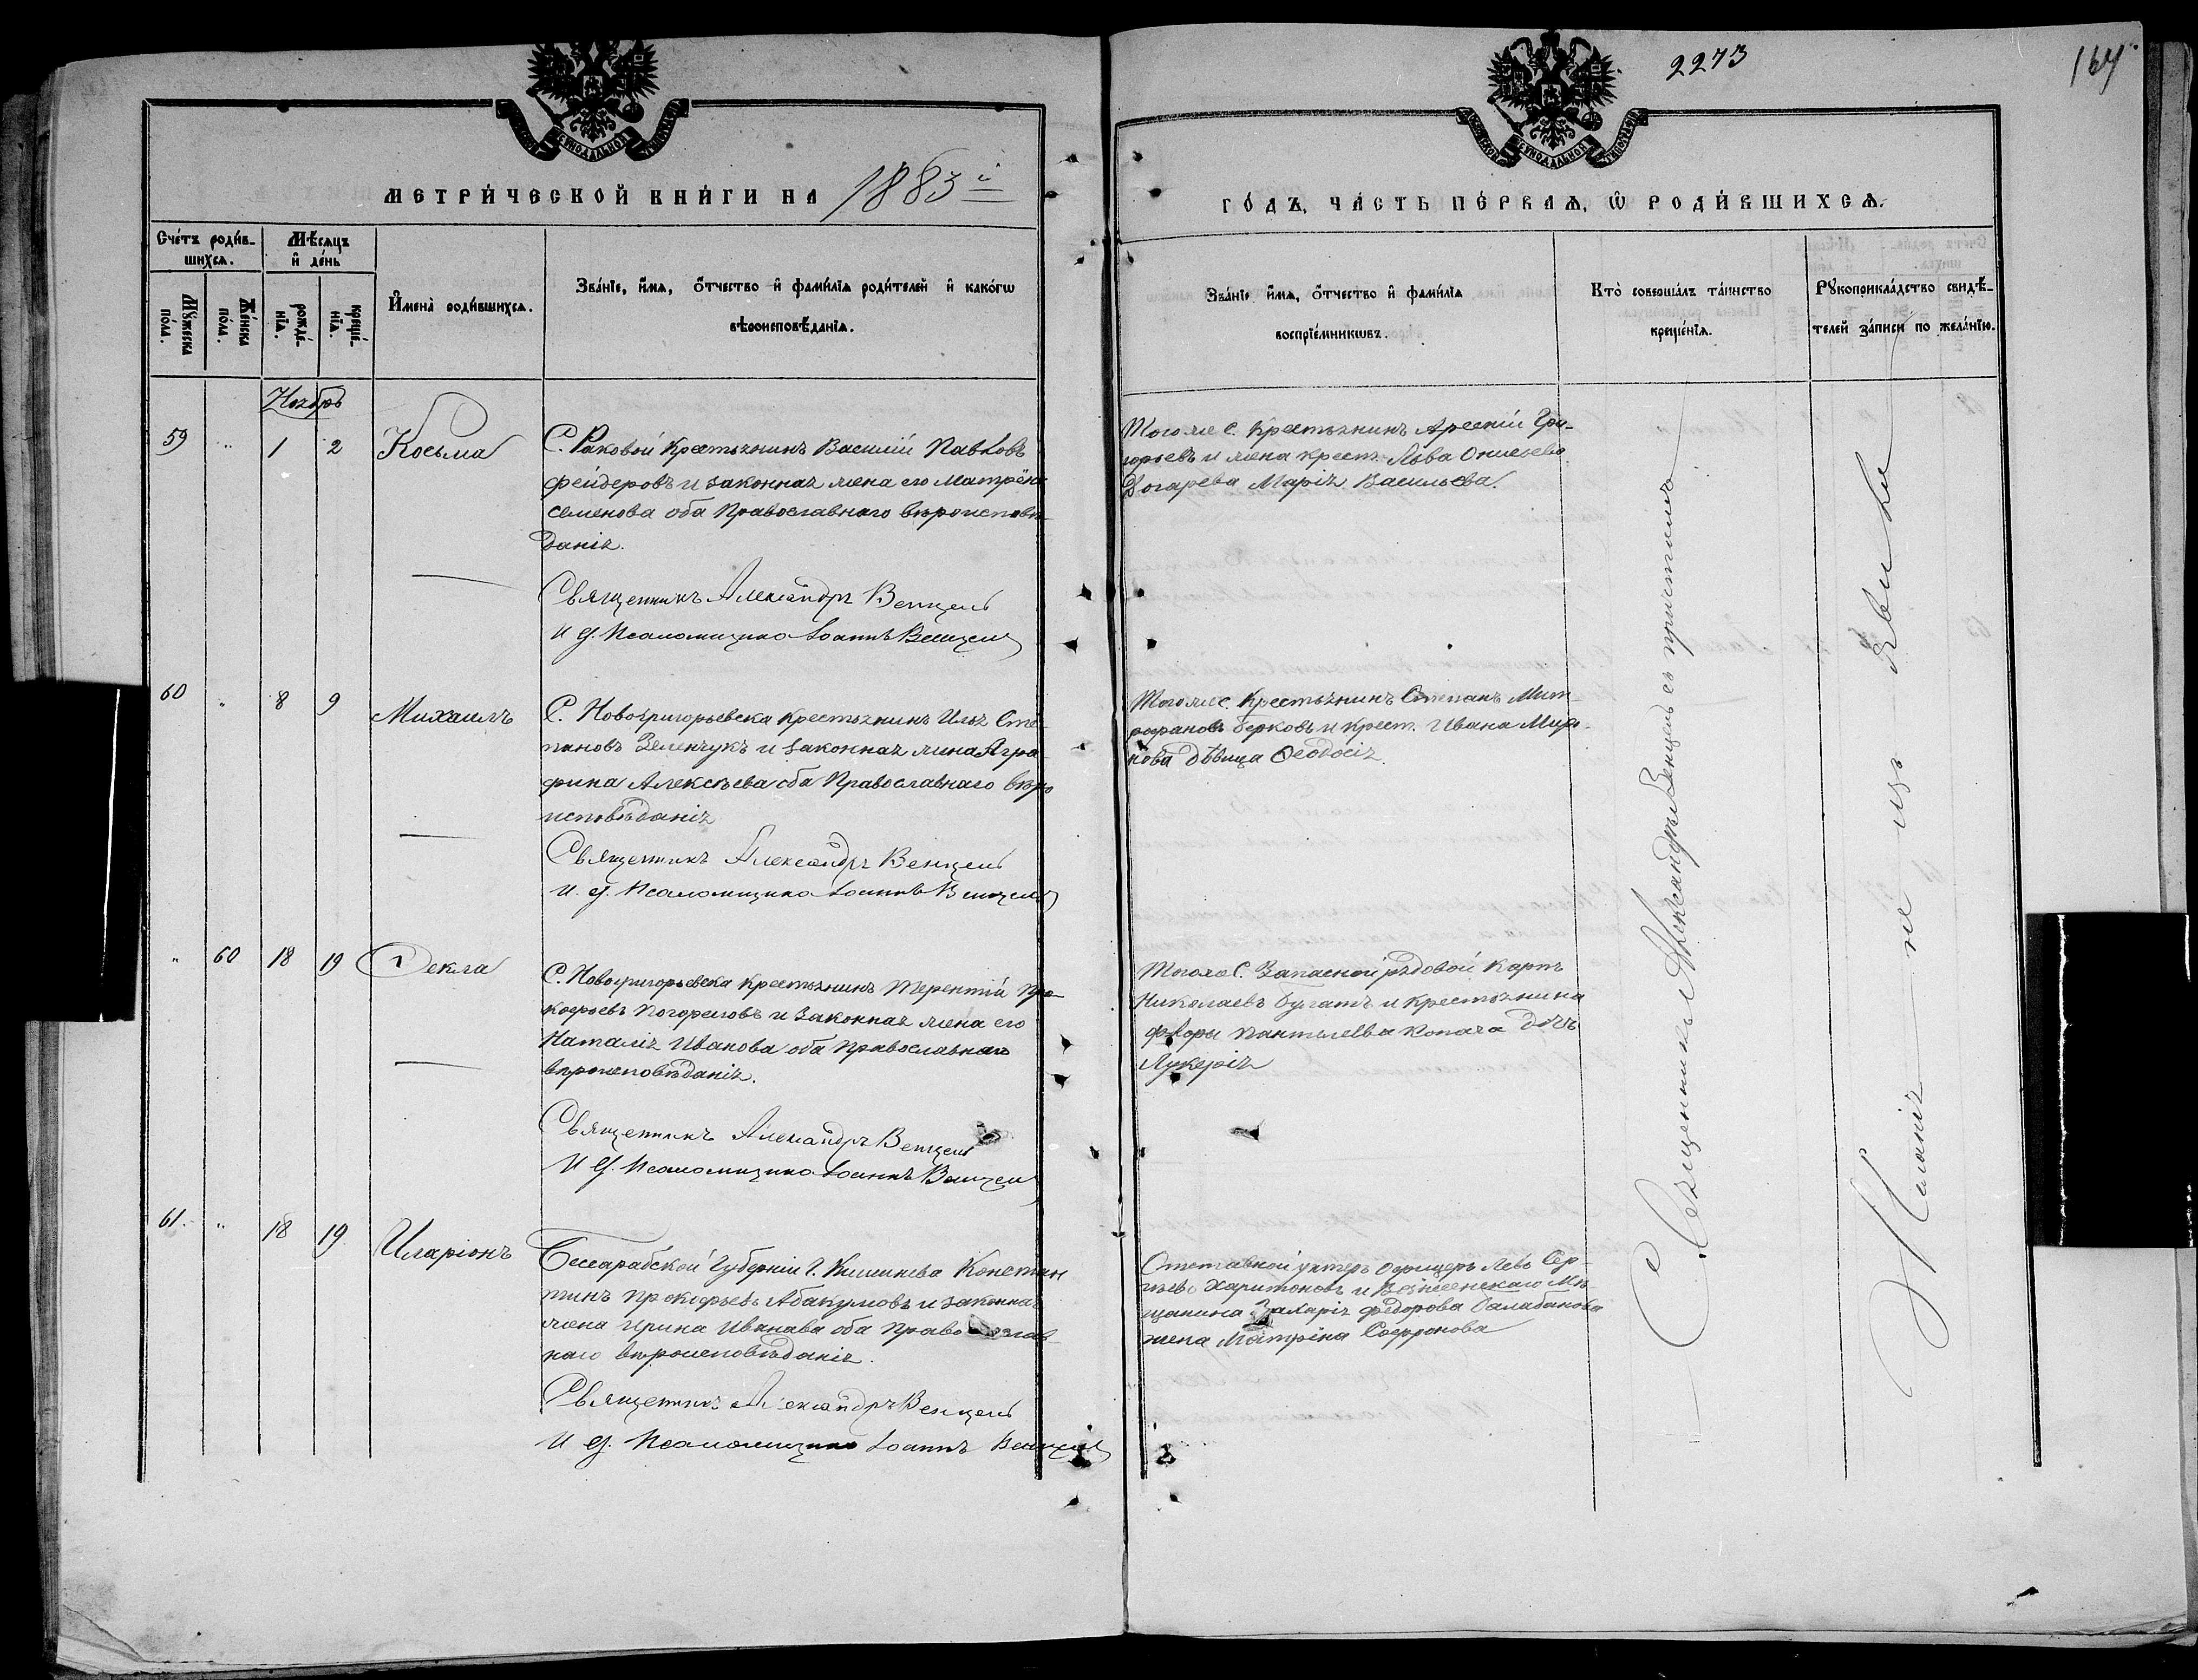 2273
164
МЕТРИ́ЧЕСКОЙ КНИ́ГИ НА 1883й
ГО́ДЪ, ЧА́СТЬ ПЕ́РВАѦ, Ѡ҆ РОДИ́ВШИХСѦ.
Сче́тъ роди́в-
шихсѧ.
Му́жеска по́ла.
Же́нска по́ла.
Мѣ́сѧцъ
и҆ де́нь
рожде́-
нїѧ.
креще́-
нїѧ.
И҆мена̀ роди́вшихсѧ.
Зва́нїе, и҆́мѧ, ѻ҆́тчество и҆ фами́лїѧ роди́телей и҆ како́гѡ
вѣроисповѣ́данїѧ.
Зва́нїе, и҆́мѧ, ѻ҆́тчество и҆ фами́лїѧ
воспрїе́мникѡвъ.
Кто̀ соверша́лъ та́инство
креще́нїѧ.
Рꙋкоприкла́дство свидѣ́-
телей за́писи по жела́нїю.
Ноябрь
59 " 1 2 Косьма
С. Раковой Крестьянинъ Василий Павловъ
Фейдеровъ и законная жена его Матрёна
Семенова оба Православнаго вѣроисповѣ-
данія.
Священникъ Александръ Венцель
И д. Псаломщика Іоаннъ Венцель
Тогоже С. Крестьянинъ Арсеній Гри-
горьевъ и жена крест. Льва
Марія Васильева.
60 " 8 9 Михаилъ
С. Новогригорьевска Крестьянинъ Илья Сте-
пановъ Зеленчукъ и законная жина Агра-
фина Алексѣева оба Православнаго вѣро
исповѣданія
Священникъ Александръ Венцель
И. д. Псаломщика Іоаннъ Венцель
Тогоже С. Крестьянинъ Степанъ Мит
рофановъ Берковъ и крест. Ивана Миро-
нова дѣвица Ѳеодосія.
" 60 18 19 Ѳекла
С. Новогригорьевска Крестьянинъ Терентій Про-
кофьевъ Погореловъ и Законная жена его
Наталія Иванова оба Православнаго
вѣроисповѣданія.
Священникъ Александръ Венцель
И д. Псаломщика Іоаннъ Венцель
Тогоже С. Запасной рядовой Карпъ
Николаевъ Булатъ и Крестьянина
Флоры Пантелева Копача дочь
Лукерія
61. " 18 19 Иларіонъ
Бессарабской Губерніи Г. Кишинева Констан
тинъ Прокофьевъ Абакумовъ и законная
жена Ирина Иванава оба Православ
наго вѣроисповѣданія.
Священникъ Александръ Венцель
И д. Псаломщика Іоаннъ Венцель
Отставной унтеръ Офицеръ Левъ Сер-
гѣевъ Харитоновъ и Вознесенскаго Мѣ
щанина Захарія Федорова Балабанова
жена Матрина Софронова
Священникъ Александръ Венцель съ причтомъ
Желанія не изъявили